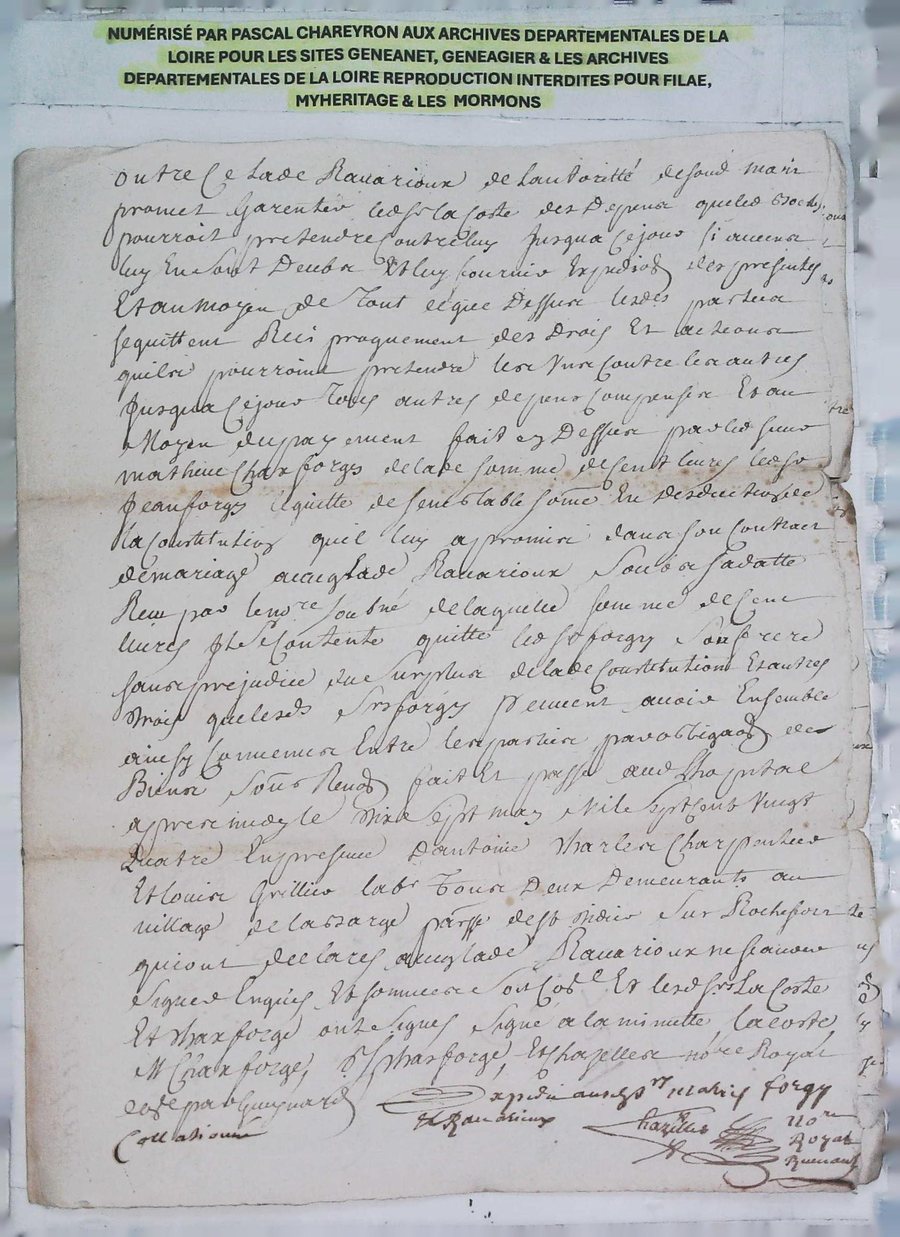 NUMÉRISÉ PAR PASCAL CHAREYRON AUX ARCHIVES DEPARTEMENTALES DE LA
LOIRE POUR LES SITES GENEANET, GENEAGIER & LES ARCHIVES
DEPARTEMENTALES DE LA LOIRE REPRODUCTION INTERDITES POUR FILAE,
MYHERITAGE & LES MORMONS
outre ce lade Rauarioux de lautoritté desond marir
promet Garentir led sr la Coste des depens queled
pourroit pretendre Contre luy Jusqua Cejour si aucuns
luy En sont deubs Et luy fournir Expedion des presentes
Et au moyen de Tout ceque Dessus lesdes parties
sequittent Reci proquement des Drois Et actions
quils pourroint pretendre les Uns Contre les autres
Jusqua Cejour Tous autres depens Compensés Et au
Moyen du payement fait cy Dessus par led sieur
mathieu Charforges delade somme de Cent liures led sr
Jean forgy quitte de semblable some En desduction de
la Constitution quil luy a promise dans son Contract
demariage auecqlade Rauarioux Sous sa datte
Receu par le nore soubné delaquelle somme de Cent
liures Jl se Contente quitte led sr forgy son frere
sans prejudice du surplus delade Constitution Et autres
drois que lesds srs forgy peuuent auoir Ensemble
ainsy Conuenus Entre les parties par obligaon de
Biens sous Renons fait Et passé aud lhopital
apres midy le dix sept may Mil sept Cent Vingt
quatre En presence dantoine Charles Charpentier
Et louis Grillier labr Tous deux Demeurants au
village de parsse de st didier sur Rochefort
qui ont declaré auecqlade Rauarioux ne scauoir
signer Enquis Et sommés Et lesd srs La Coste
Et Charforge ont signes signé a la minutte, lacoste,
M Charforge, Charforge, Et Chazelles nore Royal
par Guignard Expedié ausd srs mariés forgy
Et Rauarioux
Collationné Chazelles nore
Royal